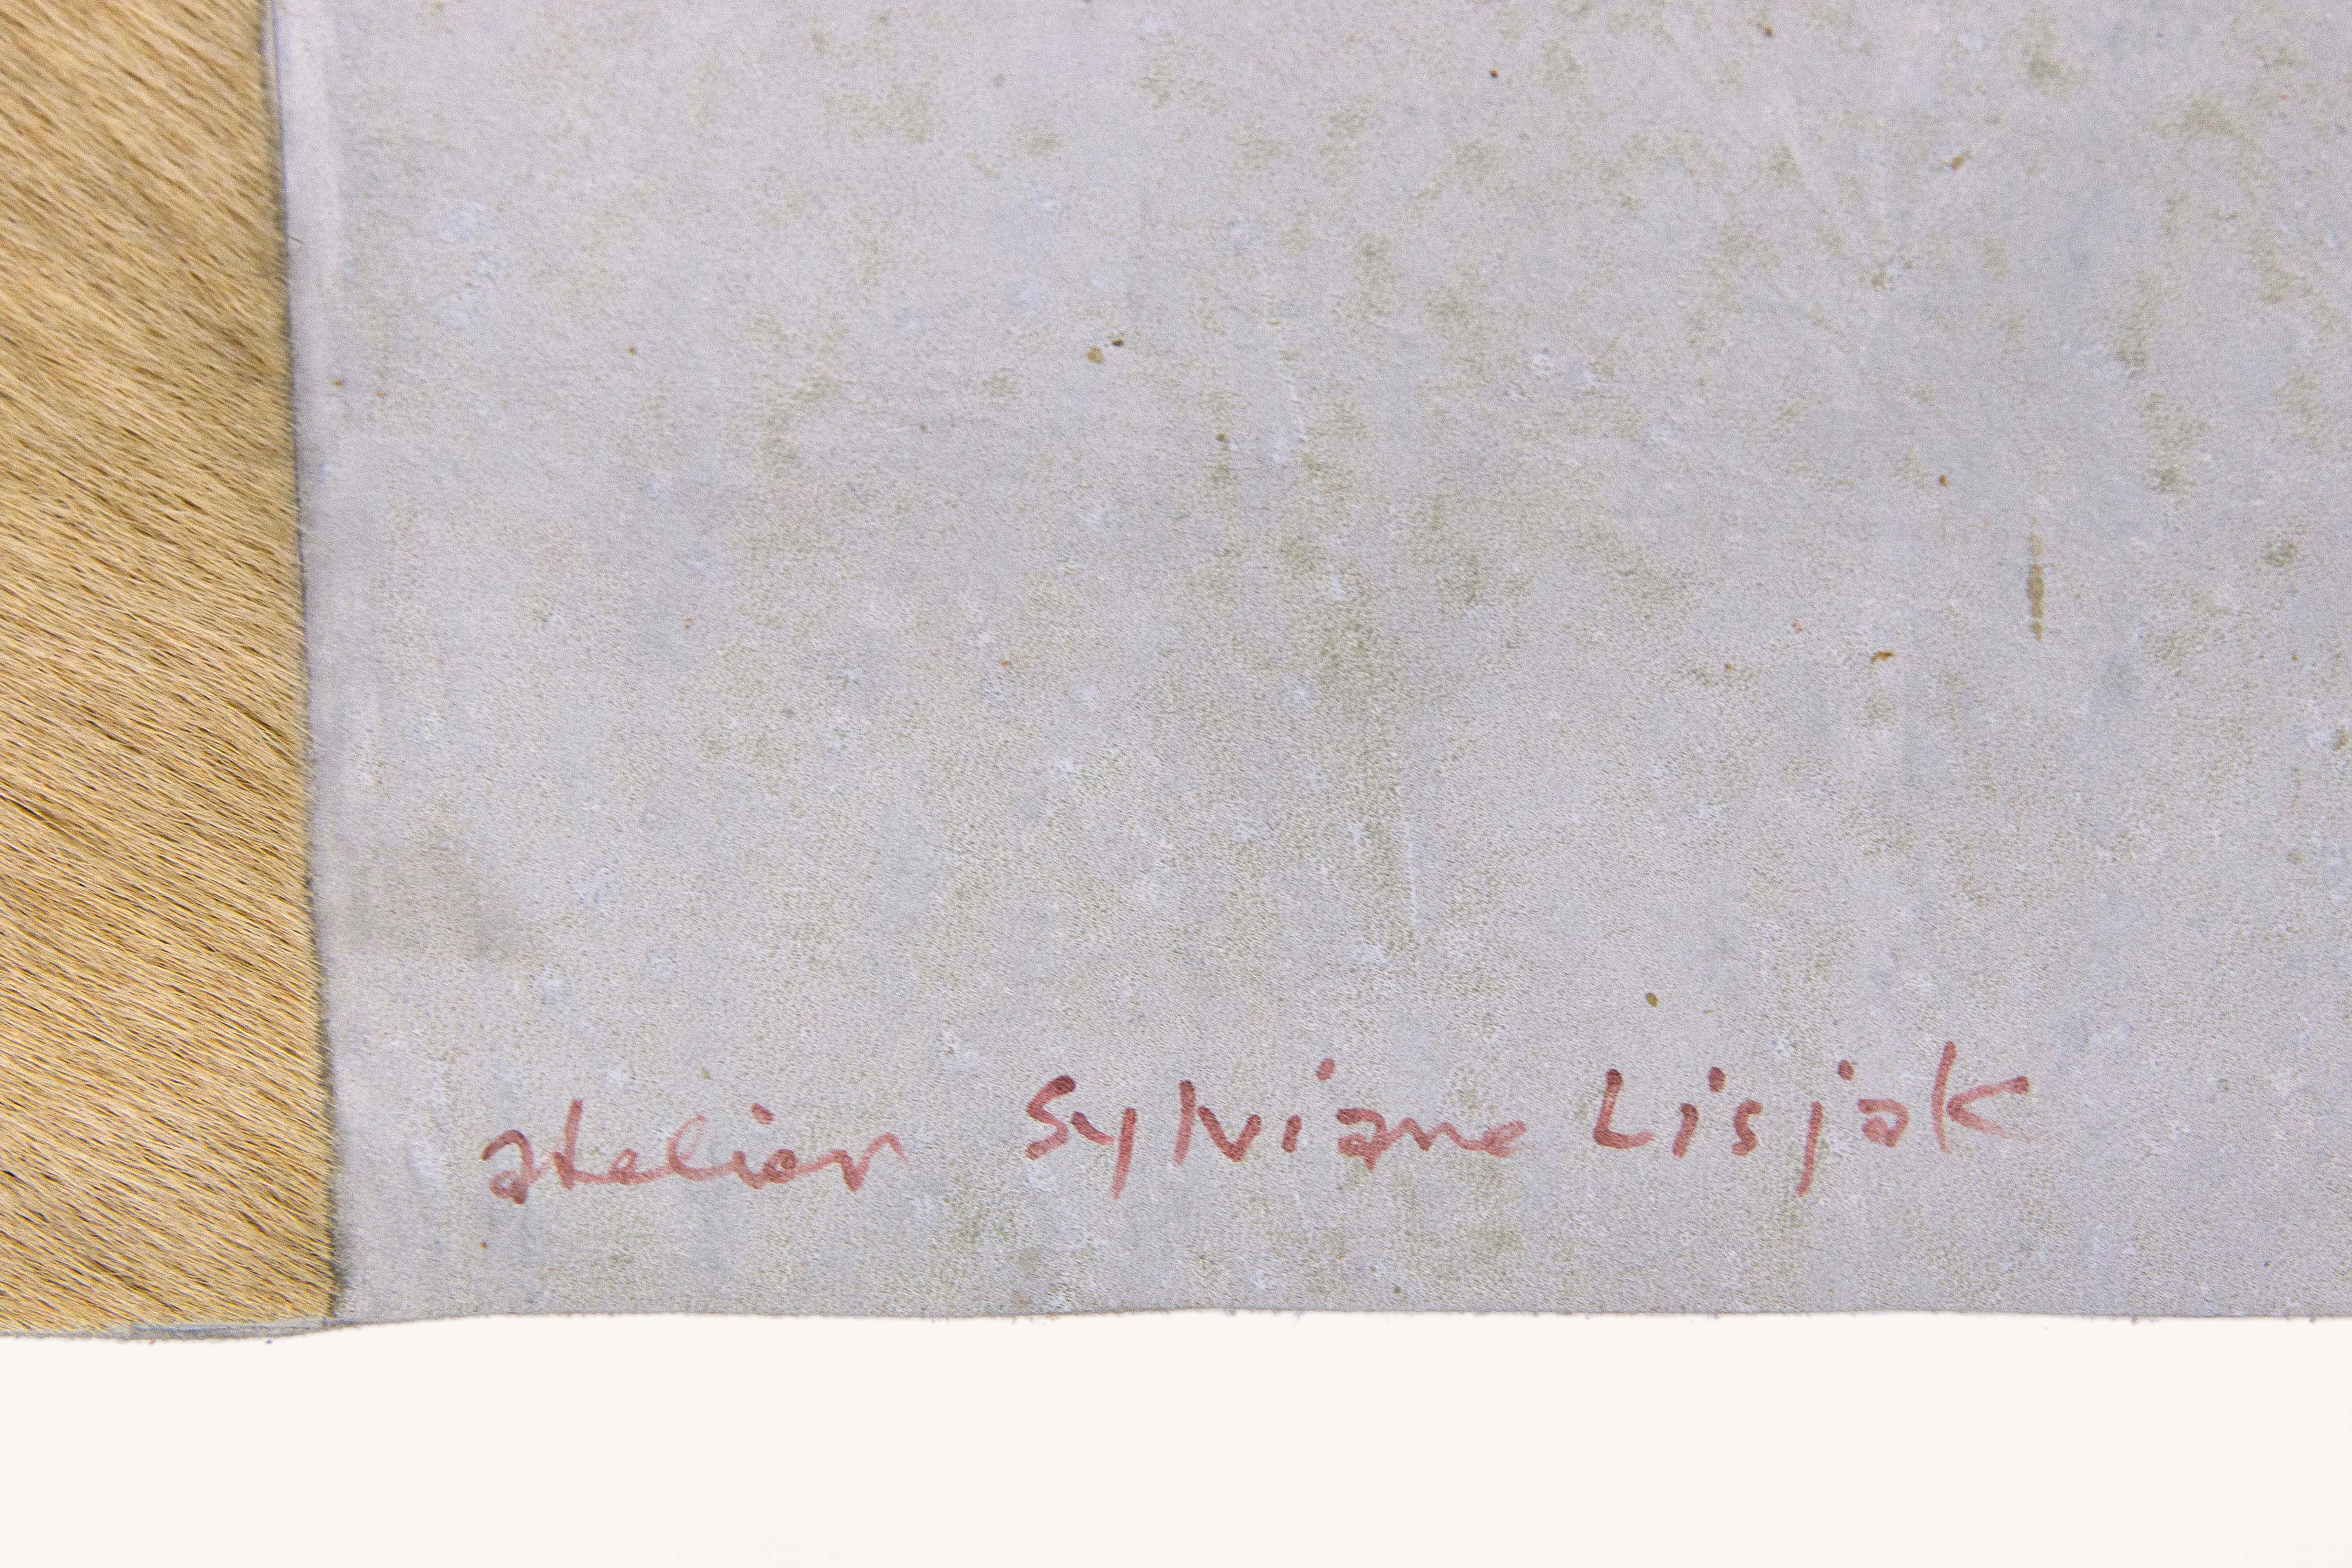 atelier Sylviane Lisjak